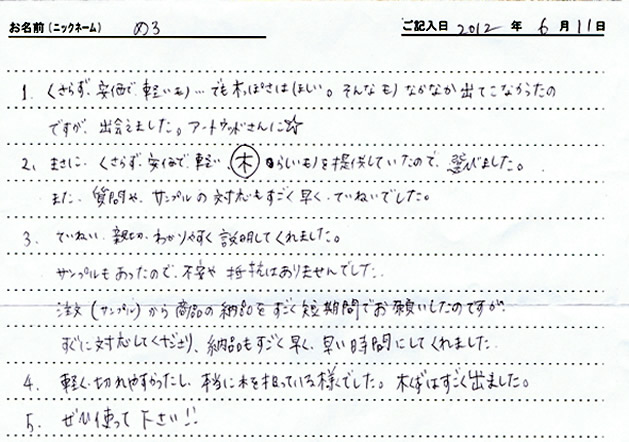 お名前(ニックネーム) める ご記入日 2012 年 6 月 11 日
1. くさらず、安価で、軽いもの…でも木っぽさはほしい。そんなものなかなか出てこなかったの
ですが、出会えました。アートウッドさんに☆
2. まさに、くさらず、安価で、軽い、木らしいものを提供していたので、選びました。
また、質問や、サンプルの対応もすごく早く、ていねいでした。
3. ていねい、親切、わかりやすく説明してくれました。
サンプルもあったので、不安や抵抗はありませんでした。
注文(サンプル)から商品の納品をすごく短期間でお願いしたのですが、
すぐに対応してくださり、納品もすごく早く、早い時間にしてくれました。
4. 軽く、切れやすかったし、本当に木を切っている様でした。木くずはすごく出ました。
5. ぜひ使って下さい!!